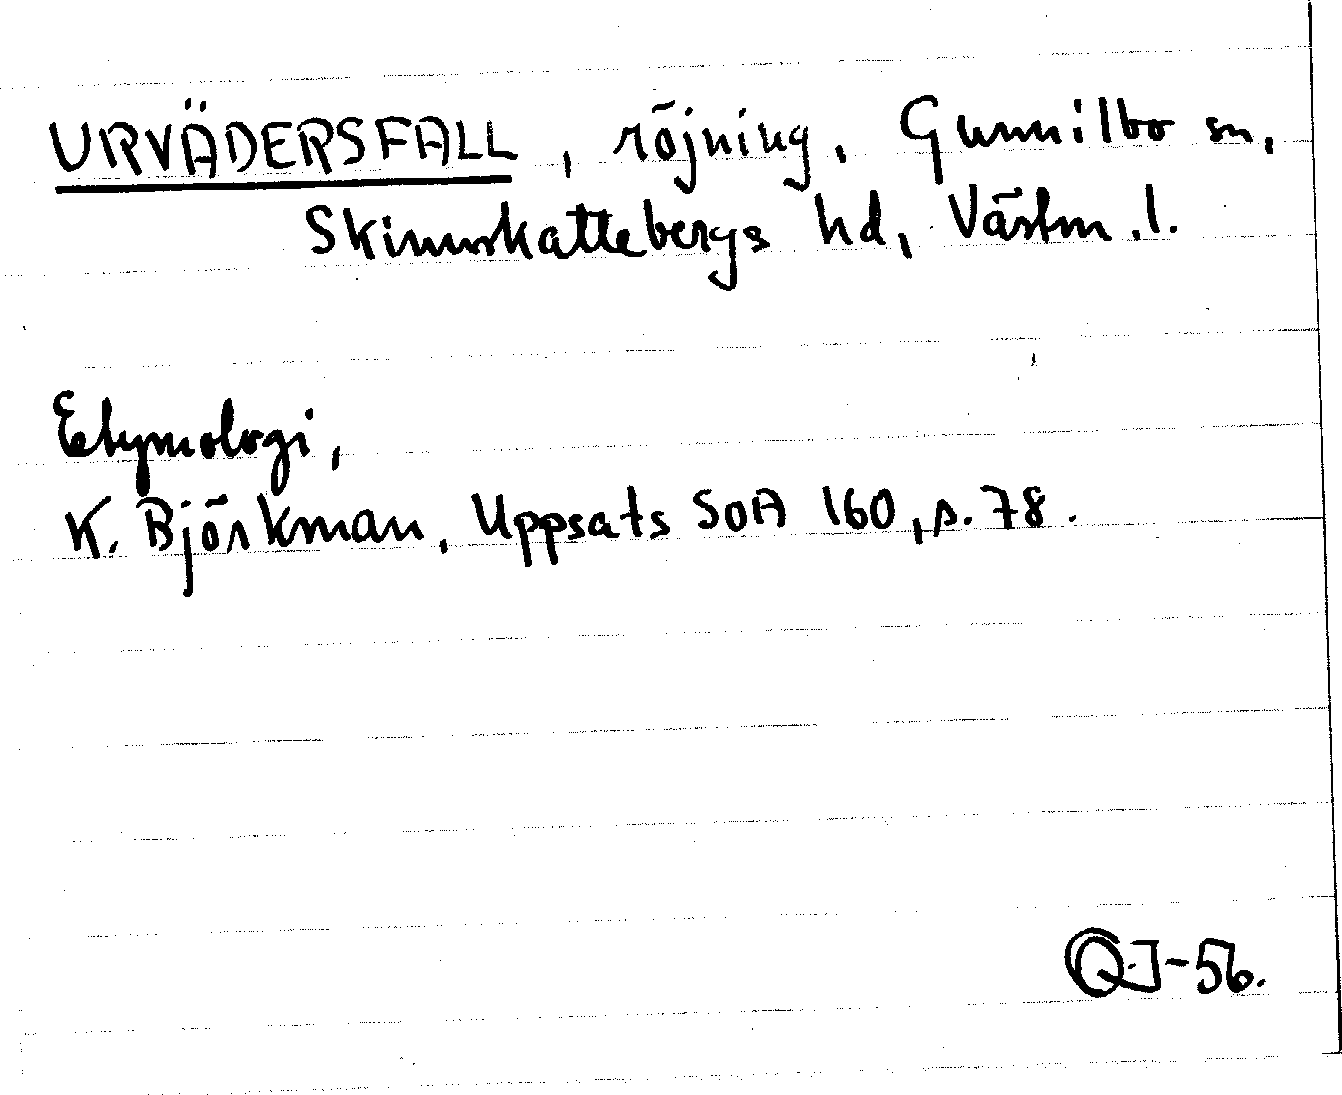 URVÄDERSFALL, röjning, Gunnilbo sn,
Skinnskattebergs hd, Västm. l.
Etymologi,
K. Björkman, Uppsats SOA 160, s. 78.
QJ-56.